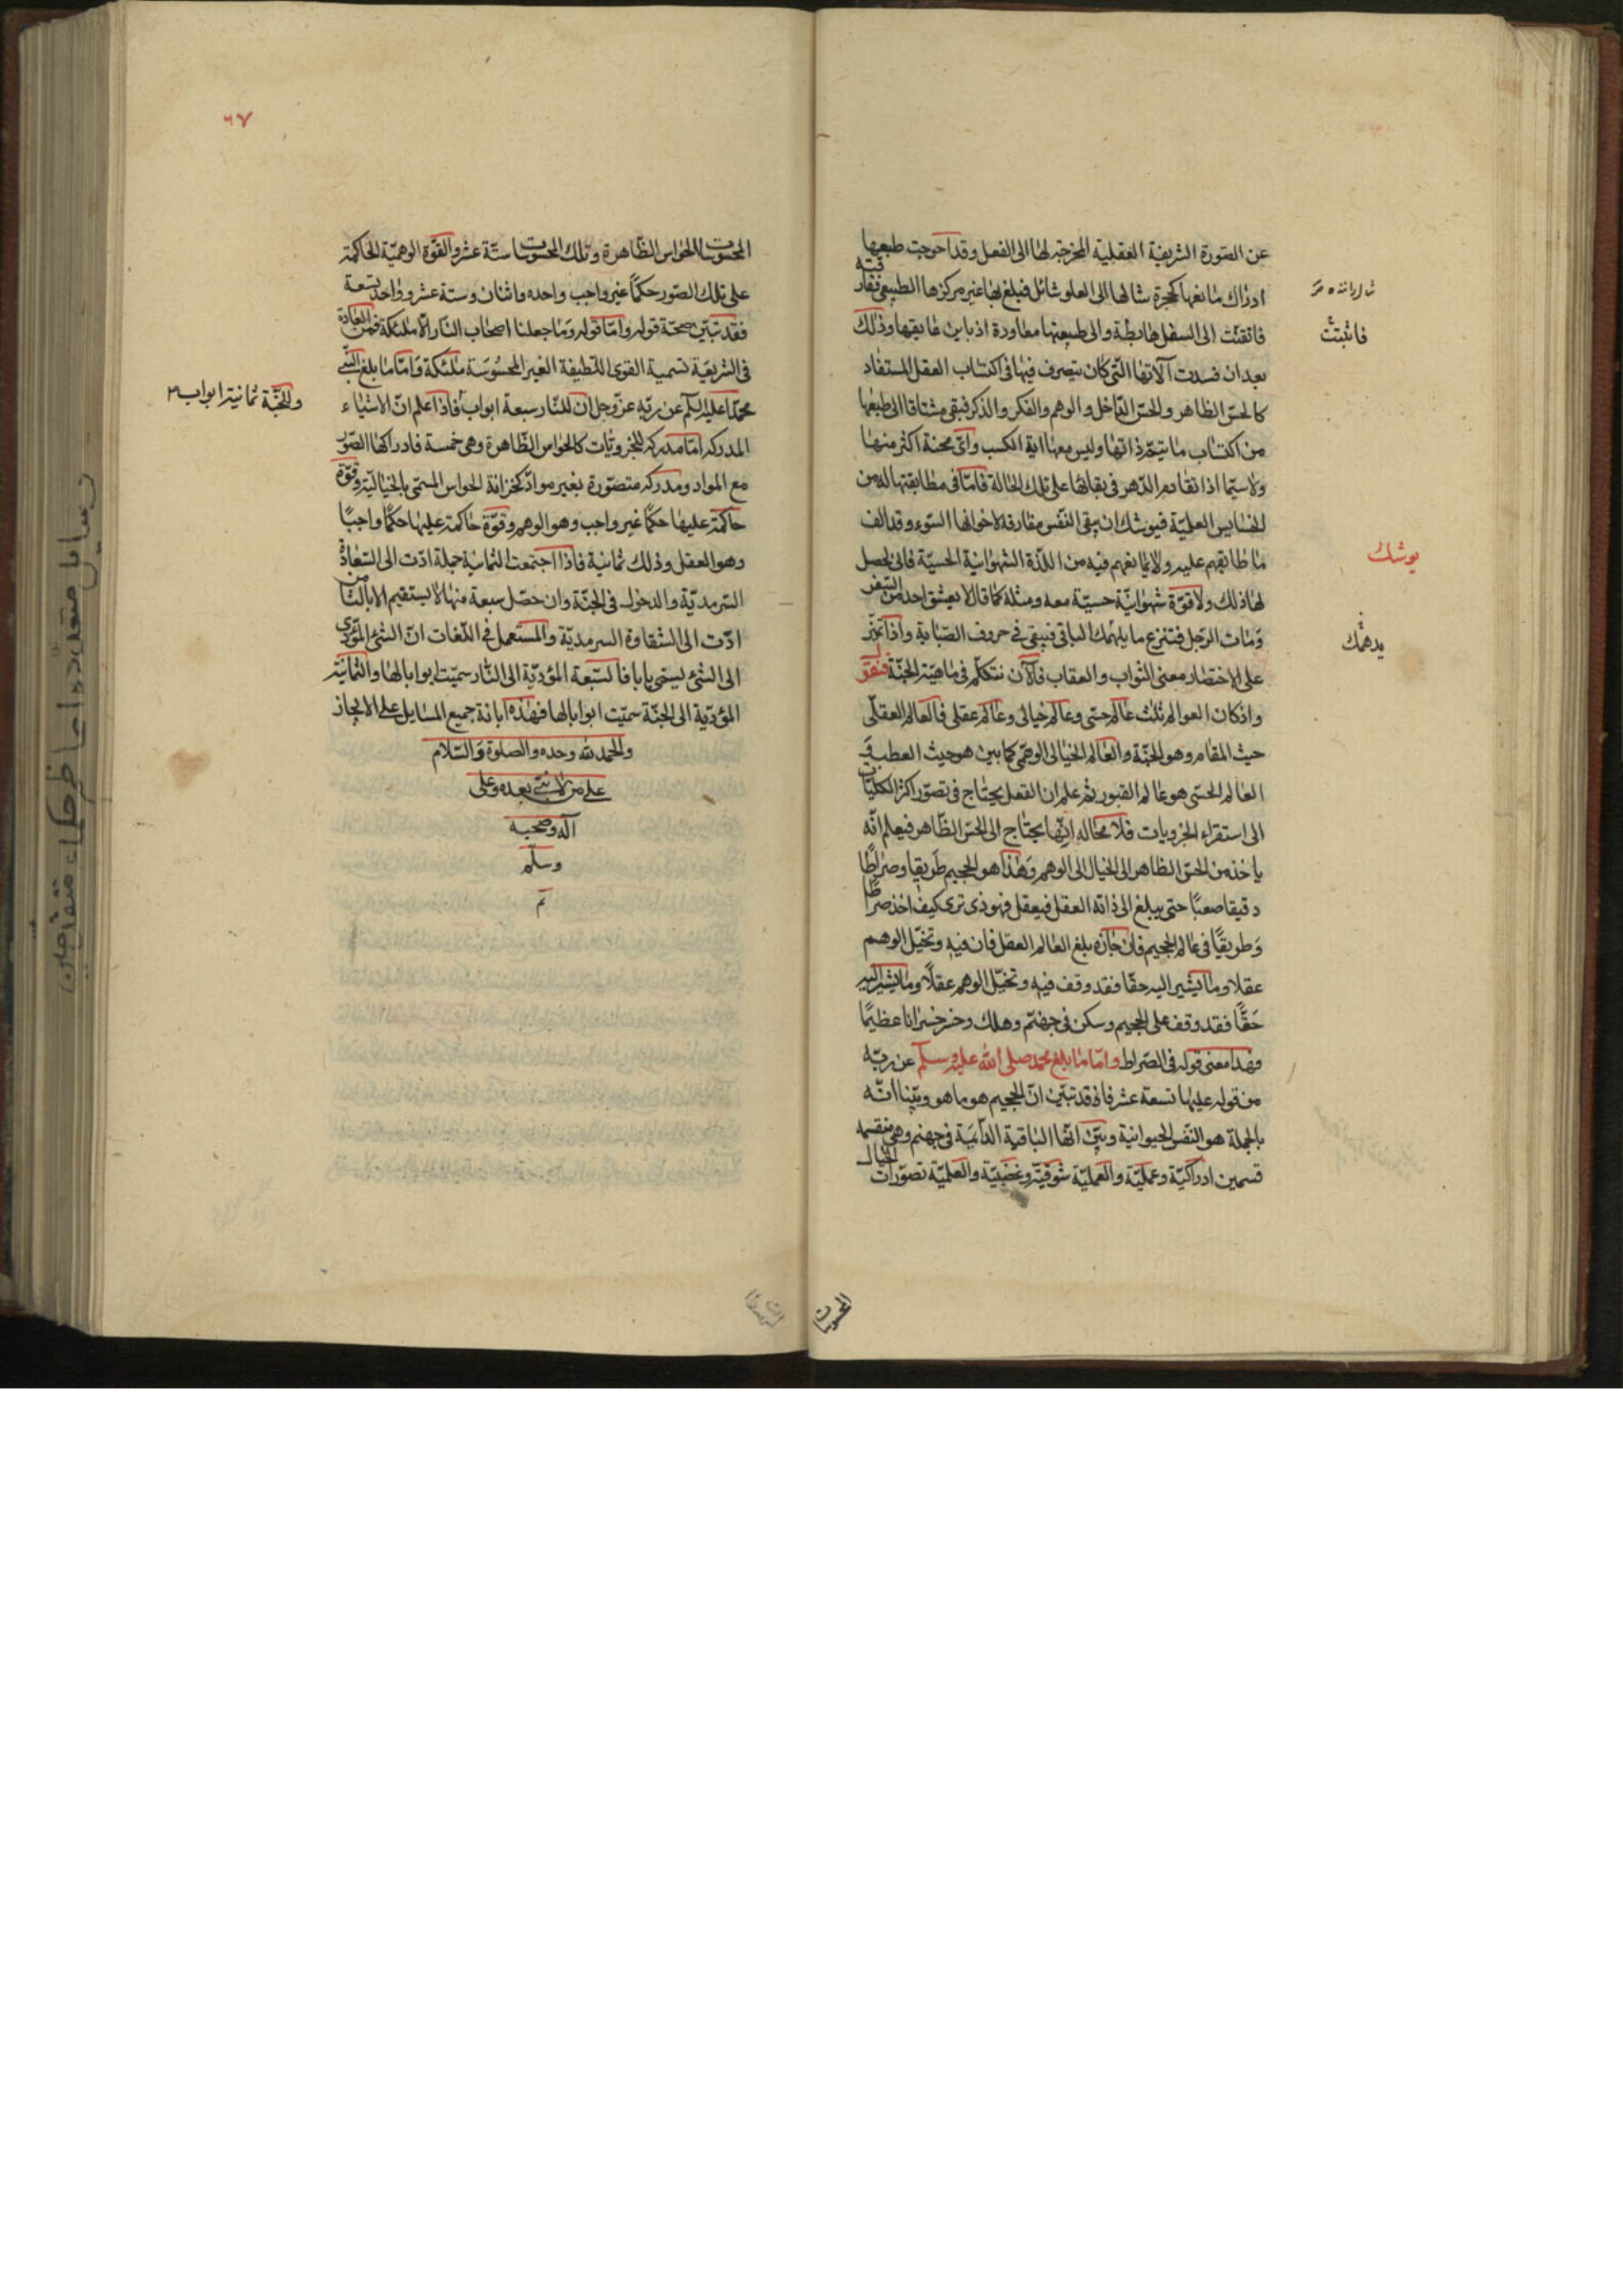 عن الصورة الشريفة العقلية المخرجة لها الى الفعل وقد احوجت طبعها
ادراك مانعها كحجرة شالها الى العلو شائل فبلغ بها غير مركزها الطبيعى ففارقته
فانقثت الى السفل هابطة والى طبيعتها معاودة اذ باين عايقها وذلك
بعد ان فسدت آلاتها التى كان يتصرف فيها فى اكتساب العقل المستفاد
كالحس الظاهر والحس الداخل والوهم والفكر والذكر فبقى مشتاقا الى طبعها
من اكتساب ما يتم ذاتها وليس معها الة الكسب واى محنة اكثر منها
ولاسيما اذا تقادم الدهر فى بقائها على تلك الحالة فامّا فى مطابقتها له من
الخسايس العلمية فيوشك ان يبقى النفس مفارقة لاخوانها السوء وقد الف
ما طابقهم عليه ولايمانعهم فيه من اللذة الشهوانية الحسية فانى يحصل
لها ذلك ولا قوة شهوانية حسية معه ومثله كما قال لا يعشق احد من السفر
ومات الرجل فتنزع ما يلهمك الباقى فيبقى فى حروف الصبابة واذا تميز
على الاختصار معنى الثواب والعقاب فالآن نتكلم فى ماهية الجنة فنقول
واذ كان العوالم ثلث عالم حسى وعالم خيالى وعالم عقلى فالعالم العقلى
حيث المقام وهو الجنة والعالم الخيالى الوهمى كما بين هو حيث العطب و
العالم الحسى هو عالم القبور ثم علم ان العقل يحتاج فى تصور اكثر الكليات
الى استقراء الجزويات فلا محالة انها يحتاج الى الحس الظاهر فيعلم انه
ياخذ من الحس الظاهر الى الخيال الى الوهم وهذا هو الجحيم طريقا وصراطا
دقيقا صعبا حتى يبلغ الى ذاته العقل فيعقل فهو ذى ترى كيف اخذ صراطا
وطريقا فى عالم الجحيم فان جازه بلغ العالم العقل فان فيه وتخيل الوهم
عقلا وما يشير اليه حقا فقد وقف فيه وتخيل الوهم عقلا وما يشير اليه
حقا فقد وقف على الجحيم وسكن فى جهنم وهلك وخسر خسرانا عظيما
وهذا معنى قوله فى الصراط وامّا ما بلغ محمد صلى الله عليه وسلم عن ربه
من قوله عليها تسعة عشر فاذ قد تبين ان الجحيم هو ما هو وبينا انه
بالجملة هو النفس الحيوانية وبين انها الباقية الدائمة فى جهنم وهى منقسمه
قسمين ادراكية وعملية والعملية شوقية وغضبية والعلمية تصورات الخيال
فانثبتت
يوشك
يدهمك
المحسوسات
٦٧
المحسوسات بالحواس الظاهرة وتلك المحسوسات ستة عشر والقوة الوهمية الحاكمة
على تلك الصور حكما غير واجب واحده واثنان وستة عشر وواحد تسعة
فقد تبين صحة قوله واما قوله وما جعلنا اصحاب النار الا ملئكة فمن العادة
فى الشريعة تسمية القوى اللطيفة الغير المحسوسة ملئكة وامّا ما بلغ النبى
محمد عليه السلم عن ربه عز وجل ان للنار سبعة ابواب فاذا اعلم ان الاشياء
المدركه اما مدركه للجزويات كالحواس الظاهرة وهى خمسة فادراكها الصور
مع المواد ومدركه متصورة بغير مواد كخزانة الحواس المسمى بالخيالية وقوة
حاكمة عليها حكما غير واجب وهو الوهم وقوة حاكمة عليها حكما واجبا
وهو العقل وذلك ثمانية فاذا اجتمعت الثمانية جملة ادت الى السعادة
السرمدية والدخول فى الجنة وان حصل سبعة منها لا يستقيم الا بالثامن
ادت الى الشقاوة السرمدية والمستعمل فى اللغات ان الشئ المؤدى
الى الشئ يسمى بابا فالسبعة المؤدية الى النار سميت ابوابا لها والثمانية
المؤدية الى الجنة سميت ابوابا لها فهذه ابانة جميع المسايل على الايجاز
والحمد لله وحده والصلوة والسلام
على من لا نبى بعده وعلى
آله وصحبه
وسلم
تم
وللجنة ثمانية ابواب